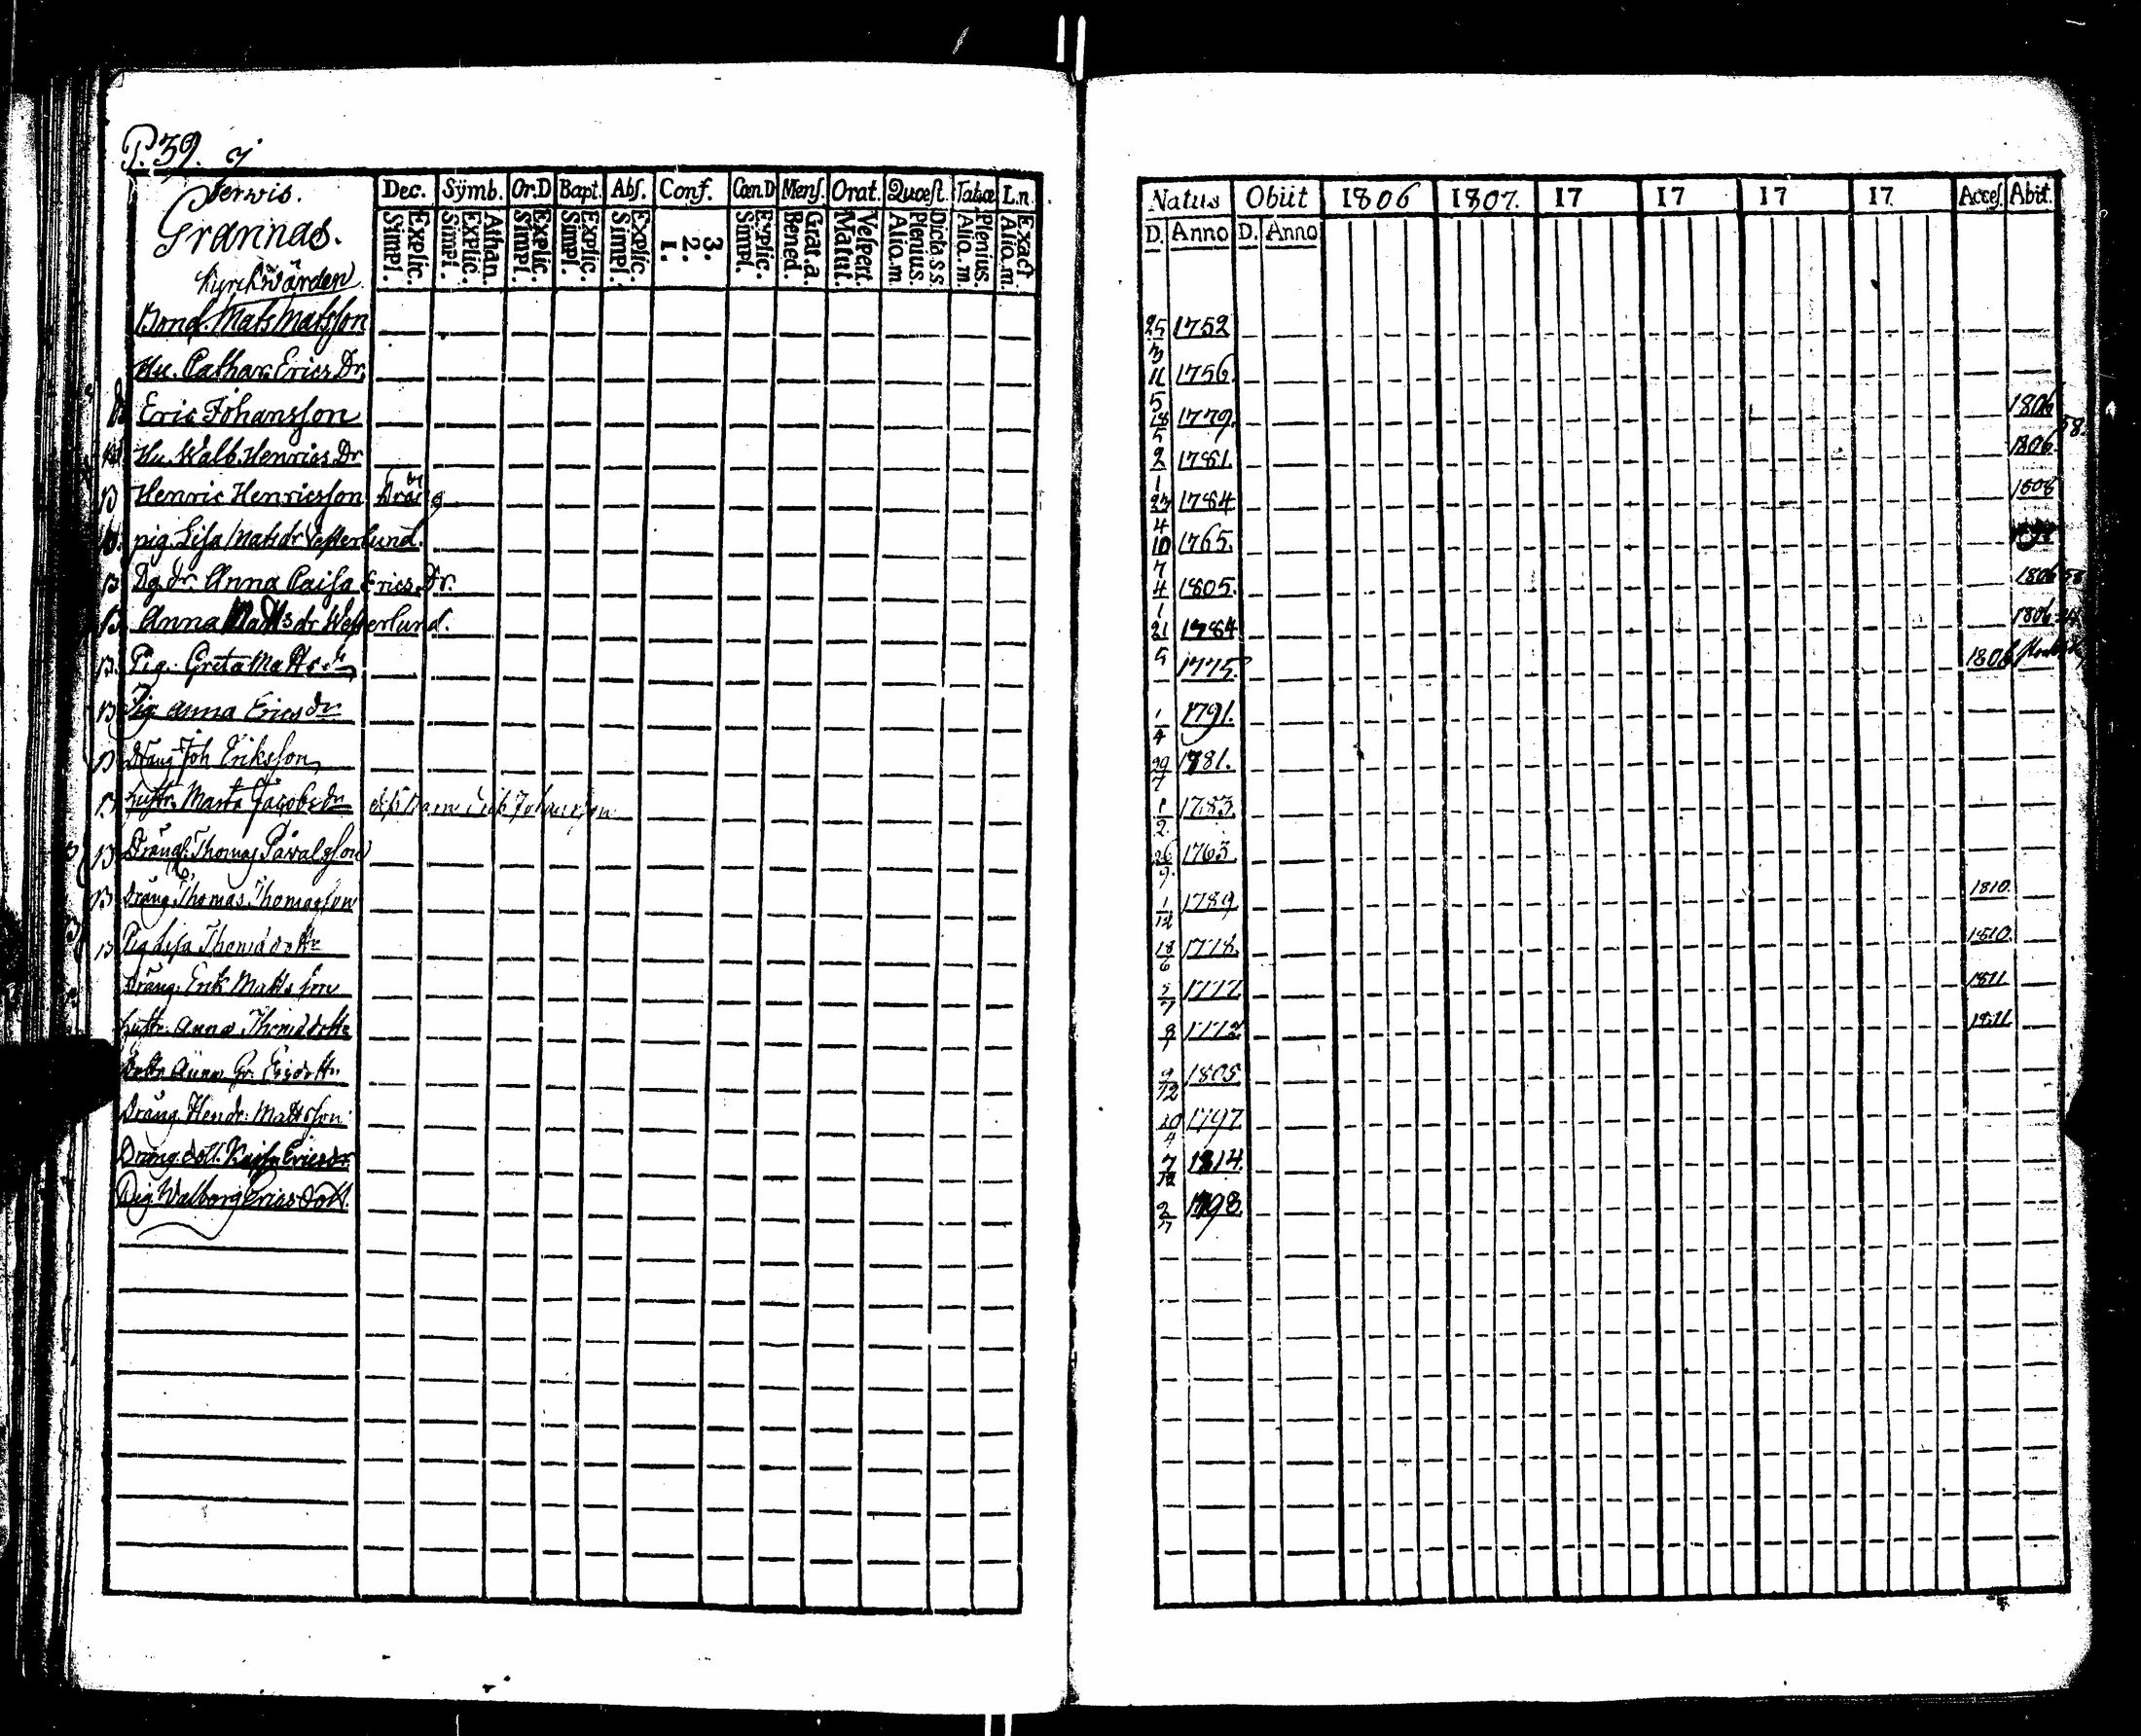 P. 39.
Jerwis.
Grannas.
Kyrckwärden
Dec. Sÿmb. Or.D Bapt. Abſ. Conf. Cœn.D Menſ. Orat. Quœſt. Tabœ L.n.
Simpl. Explic. Simpl. Explic. Athan. Simpl. Explic. Simpl. Explic. Simpl. Explic. 1. 2. 3. Simpl. Explic. Bened. Grat.a. Matut. Veſpert. Alio.m Plenius. Dicta.S.S. Alio.m. Plenius. Alio.m. Exact
Natus Obiit 1806 1807. 17 17 17 17 Acceſ. Abit.
D. Anno D. Anno
Bond. Mats Matsson 25/3 1752
Hu. Cathar. Erics Dr. 11/5 1756.
Eric Johansson 18/5 1779. 1806
Hu. Walb. Henrics Dr 2/1 1781. 1806
B Henric Henricsson Dräng 23/4 1784 1808
pig. Lisa Matsdr Westerlund. 10/7 1765.
B Dg. dr. Anna Caisa Erics Dr. 4/1 1805. 1806 58
B Anna Matts dr Westerlund. 21/5 1784 1806
B. Pig. Greta Matts dr 1775. 1806
B Pig Anna Erics dr 1/4 1791.
B Dräng Joh Eriksson 29/7 1781.
B hustr. Maria Jacobs dr 1/2 1783.
B Dräng. Thomas Påvalsson 26/9 1763.
B Dräng Thomas Thomasson 1/12 1789 1810.
B Pig Lisa Thomsdottr 18/6 1778. 1810.
Dräng. Erik Mattsson 5/7 1777. 1811
hustr. Anna Thomsdottr 1772 1811
Dottr Anna Gr. Ersdottr 9/12 1805
Dräng Hendr: Mattsson 20/4 1797.
Dräng. dott. Kajsa Ericsdr 7/12 1814.
Pig Walborg Ericsdott. 2/7 1798.